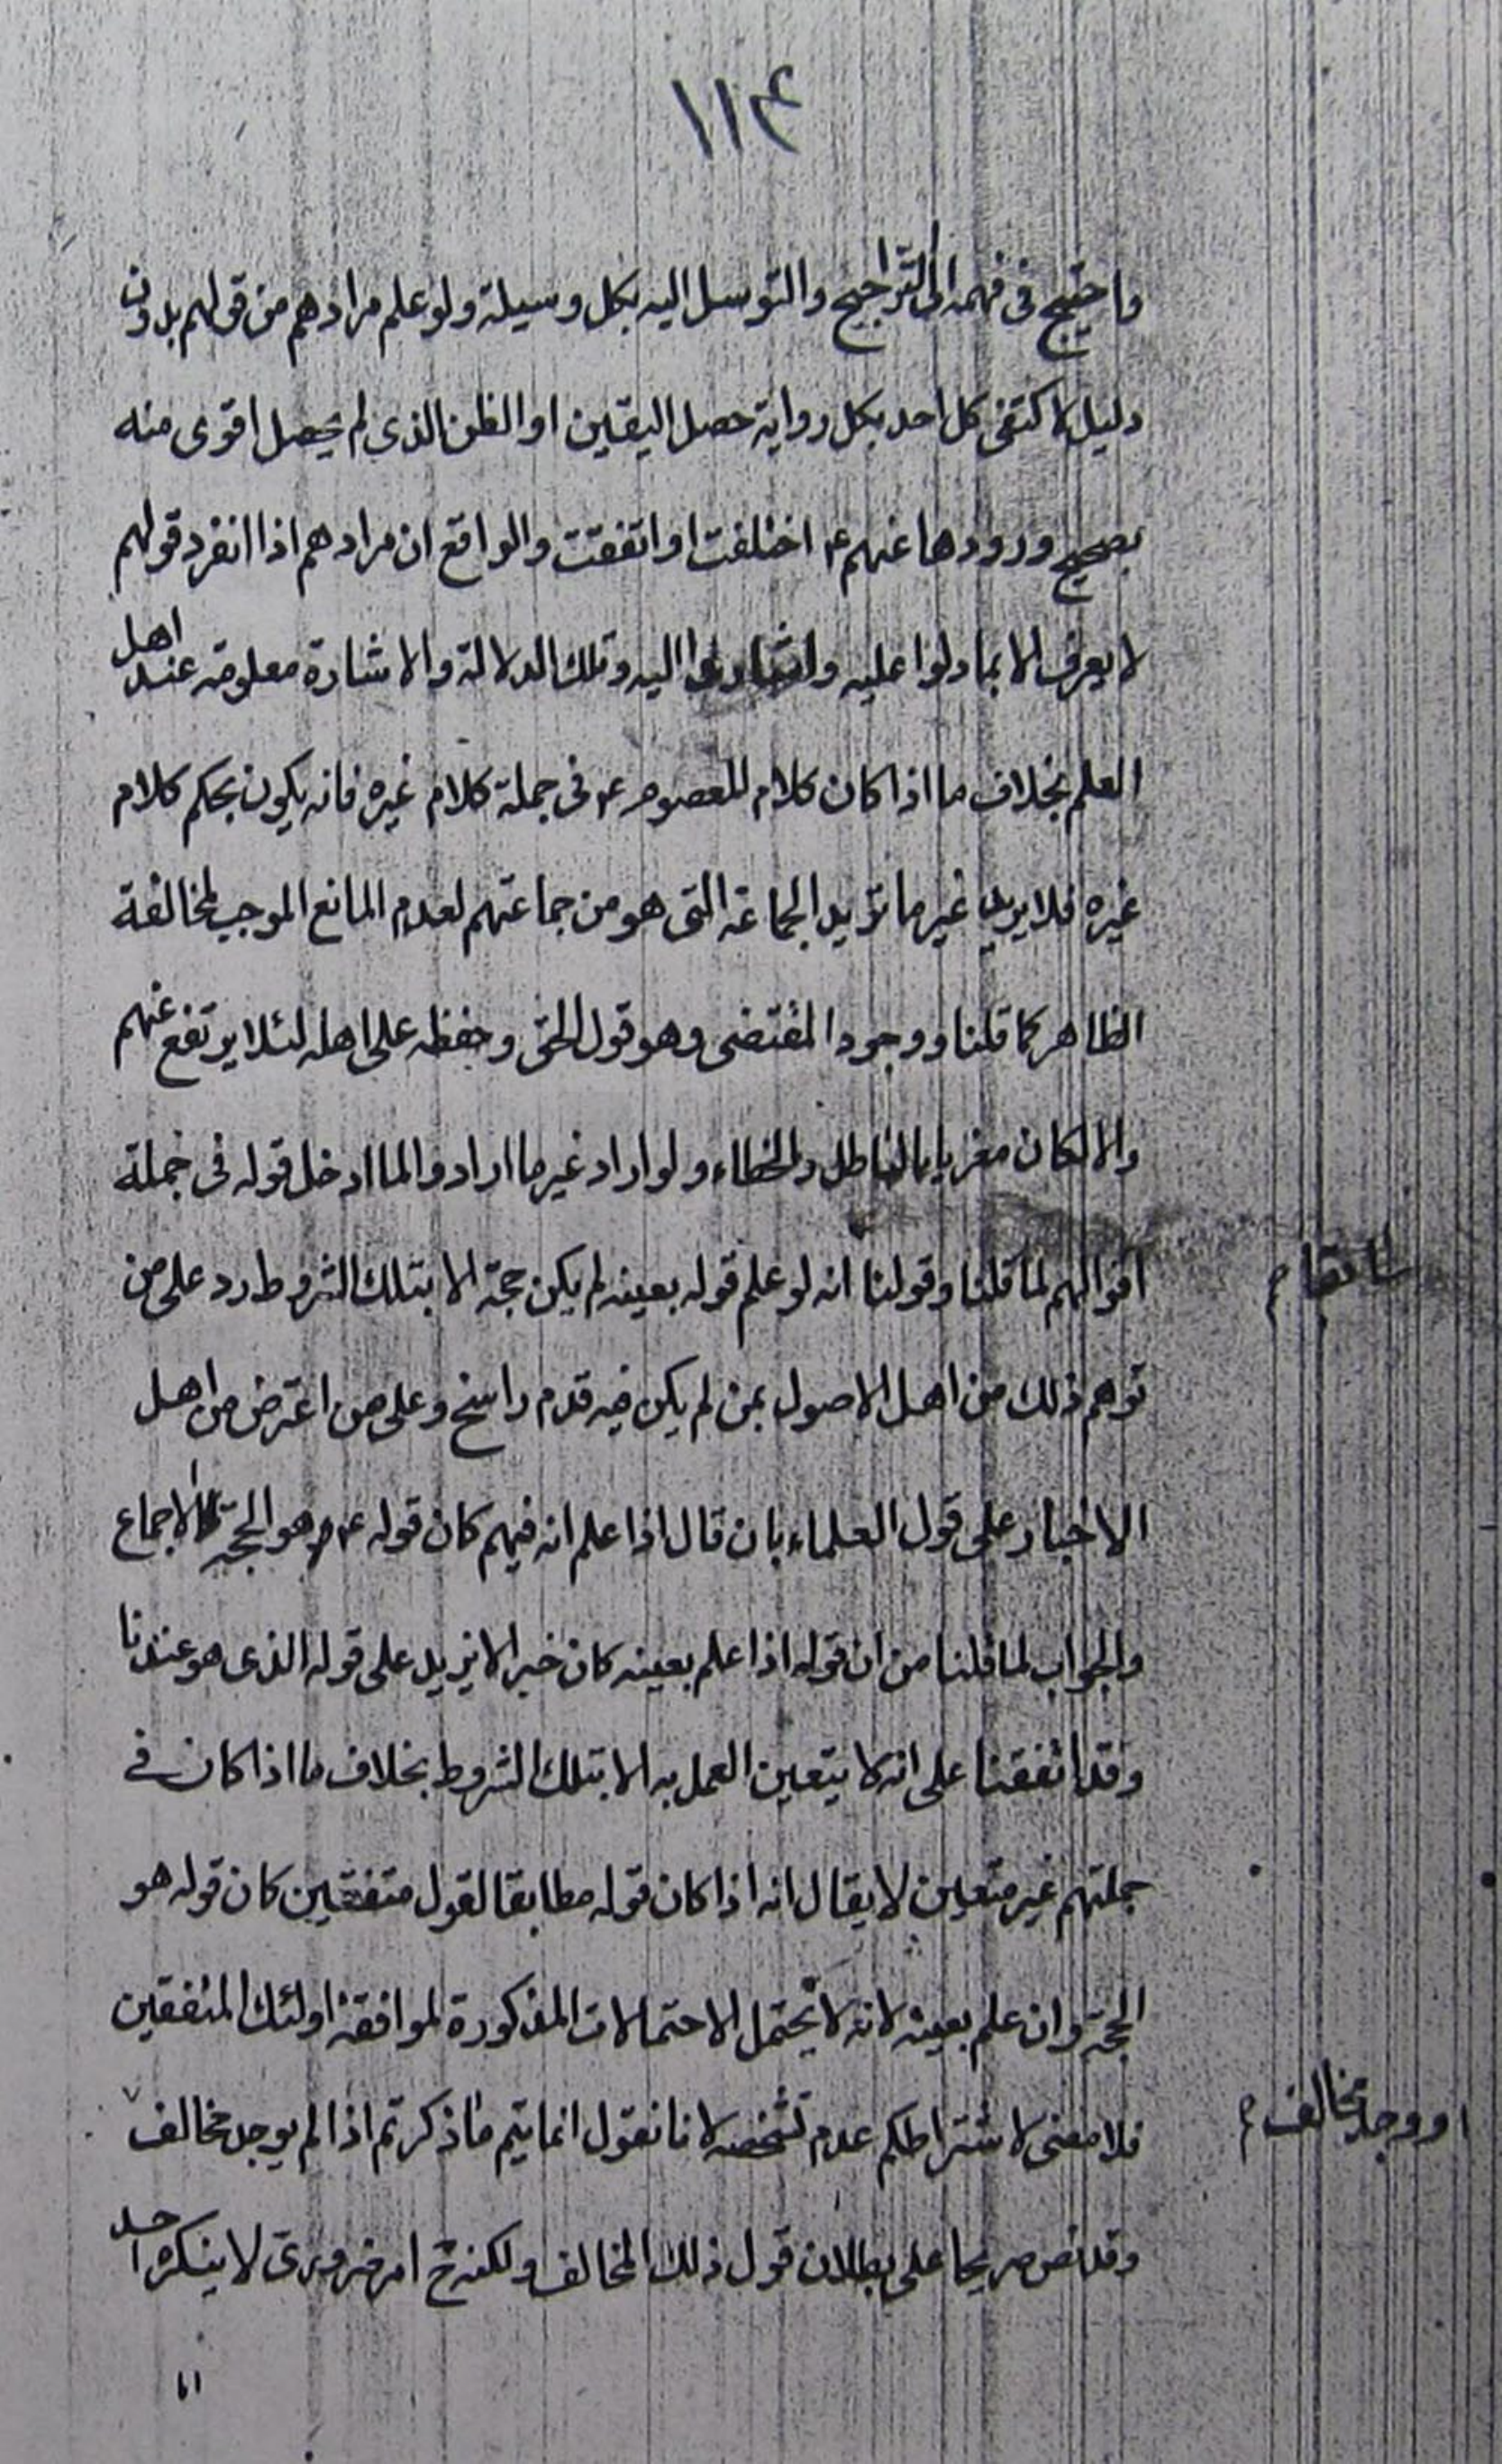 ١١٤
واحتيج فى فهمه الى التراجيح والتوسل اليه بكل وسيلة ولو علم مرادهم من قولهم بدون
دليل لاكتفى كل احد بكل رواية حصل اليقين او الظن الذى لم يحصل اقوى منه
بصحيح ورودها عنهم ع اختلفت او اتفقت والواقع ان مرادهم اذا انفرد قولهم
لا يعرف الا بما دلوا عليه واشاروا اليه وتلك الدلالة والاشارة معلومة عند اهل
العلم بخلاف ما اذا كان كلام المعصوم ع فى جملة كلام غيره فانه يكون بحكم كلام
غيره فلا يريد غير ما تريد الجماعة التى هو من جماعتهم لعدم المانع الموجب لمخالفة
الظاهر كما قلنا ووجود المقتضى وهو قول الحق وحفظه على اهله لئلا يرتفع عنهم
والا لكان مغريا بالباطل والخطاء ولو اراد غير ما ارادوا لما ادخل قوله فى جملة
اقوالهم لما قلنا وقولنا انه لو علم قوله بعينه لم يكن حجة الا بتلك الشروط رد على من
سابقا م
توهم ذلك من اهل الاصول بمن لم يكن فيه قدم راسخ وعلى من اعترض من اهل
الاخبار على قول العلماء بان قال اذا علم انه فيهم كان قوله ع هو الحجة لا الاجماع
والجواب لما قلنا من ان قوله اذا علم بعينه كان خبرا لا يزيد على قوله الذى هو عندنا
وقد اتفقنا على انه لا يتعين العمل به الا بتلك الشروط بخلاف ما اذا كان فى
جملتهم غير متعين لا يقال انه اذا كان قوله مطابقا لقول متفقين كان قوله هو
الحجة وان علم بعينه لانه لا يحتمل الاحتمالات المذكورة لموافقة اولئك المتفقين
فلا معنى لاشتراطكم عدم تشخصه لانا نقول انما يتم ما ذكرتم اذا لم يوجد مخالف
او وجد مخالف م
وقد نص صريحا على بطلان قول ذلك المخالف ولكنه ح امر ضرورى لا ينكره احد